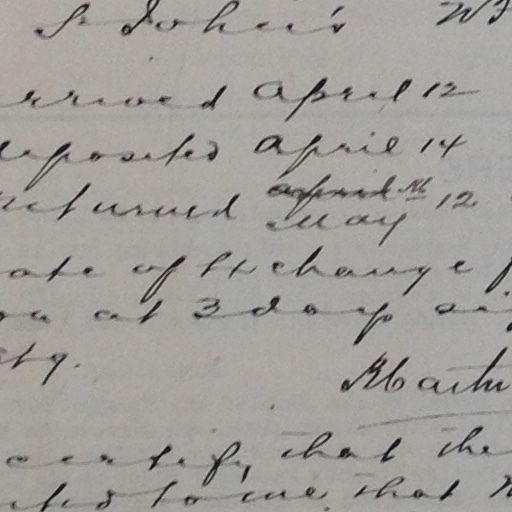 St John's
rrived April 12
deposited April 14
returned April 12
May
ate of Exchange
at 3 days
certify, that the
to me that